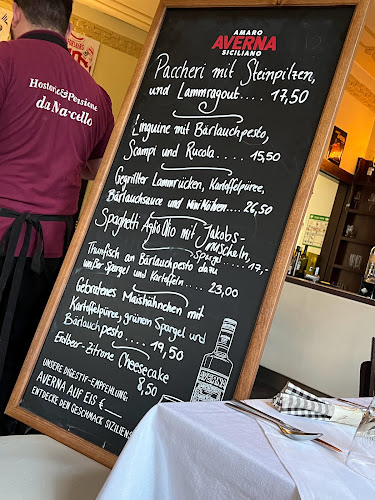 Hosteria & Pensione
da Marcello
AMARO
AVERNA
SICILIANO
Paccheri mit Steinpilzen,
und Lammragout.... 17,50
Linguine mit Bärlauchpesto,
Scampi und Rucola..... 15,50
Gegrillter Lammrücken, Kartoffelpüree,
Bärlauchsauce und Mini Möhren.... 26,50
Spaghetti Aglio Olio mit Jakobs-
muscheln,
Spargel.... 17,-
Thunfisch an Bärlauchpesto dazu
weißer Spargel und Kartoffeln.... 23,00
Gebratenes Maishähnchen mit
Kartoffelpüree, grünem Spargel und
Bärlauchpesto.... 19,50
Erdbeer-Zitrone Cheesecake
8,50
UNSERE DIGESTIF-EMPFEHLUNG:
AVERNA AUF EIS €
ENTDECKE DEN GESCHMACK SIZILIENS
AVERNA